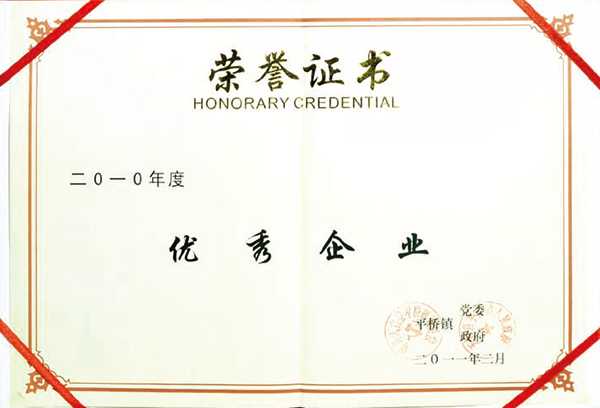 荣誉证书
HONORARY CREDENTIAL
二〇一〇年度
优秀企业
平桥镇 党委
政府
二〇一一年三月